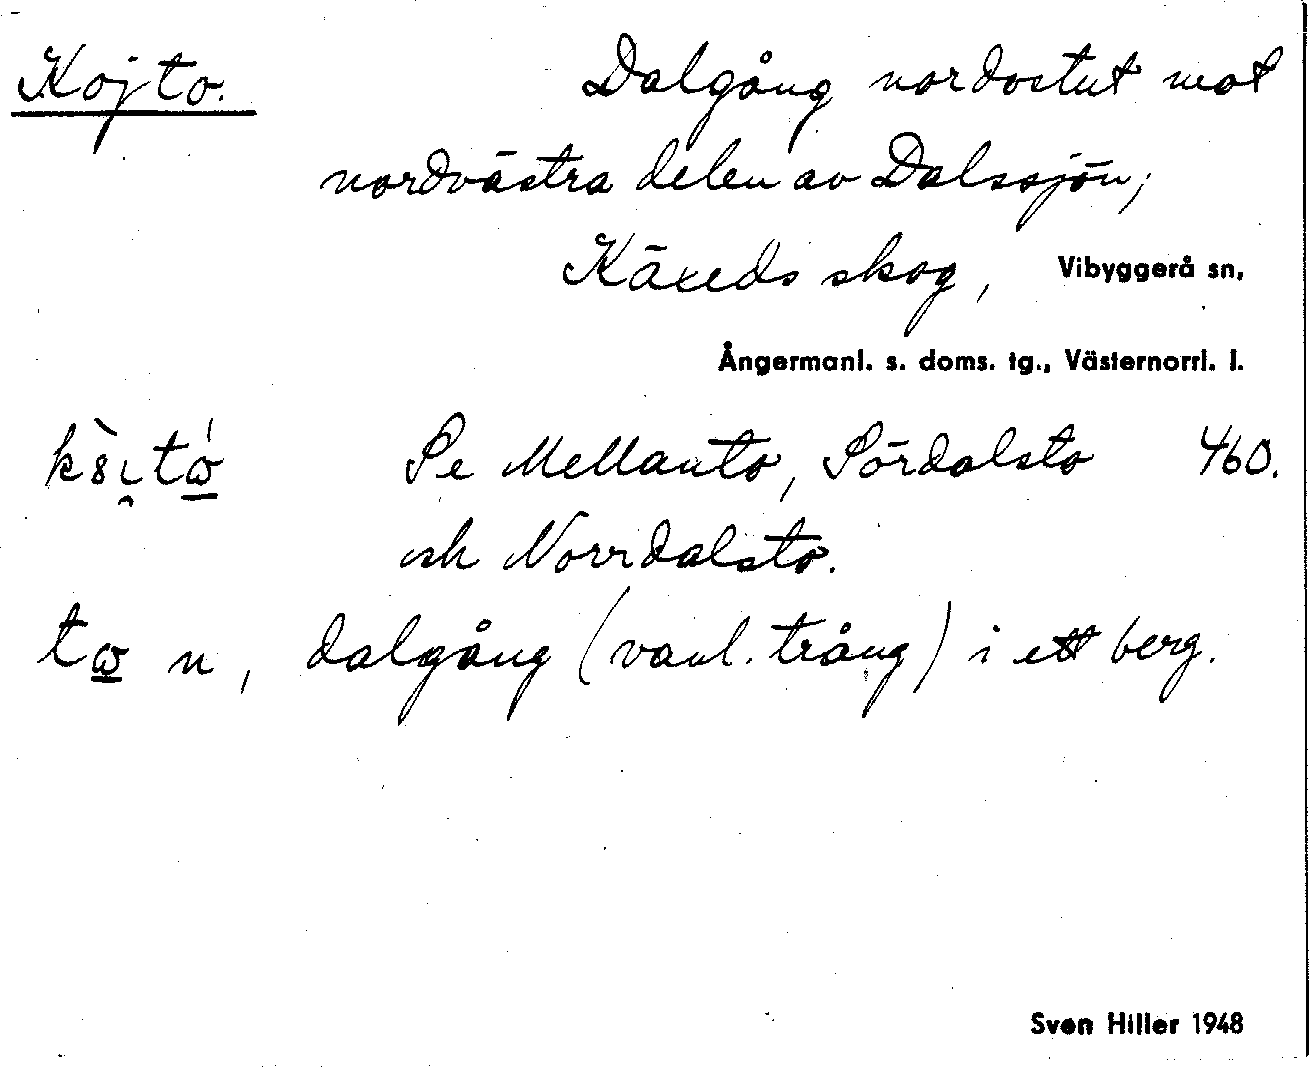 Kojto. Dalgång nordostut mot
nordvästra delen av Dalssjön;
Käxeds skog, Vibyggerå sn,
Ångermanl. s. doms. tg., Västernorrl. l.
Se Mellanto, Sördalsto 460.
och Norrdalsto.
tω n, dalgång (vanl. trång) i ett berg.
Sven Hiller 1948